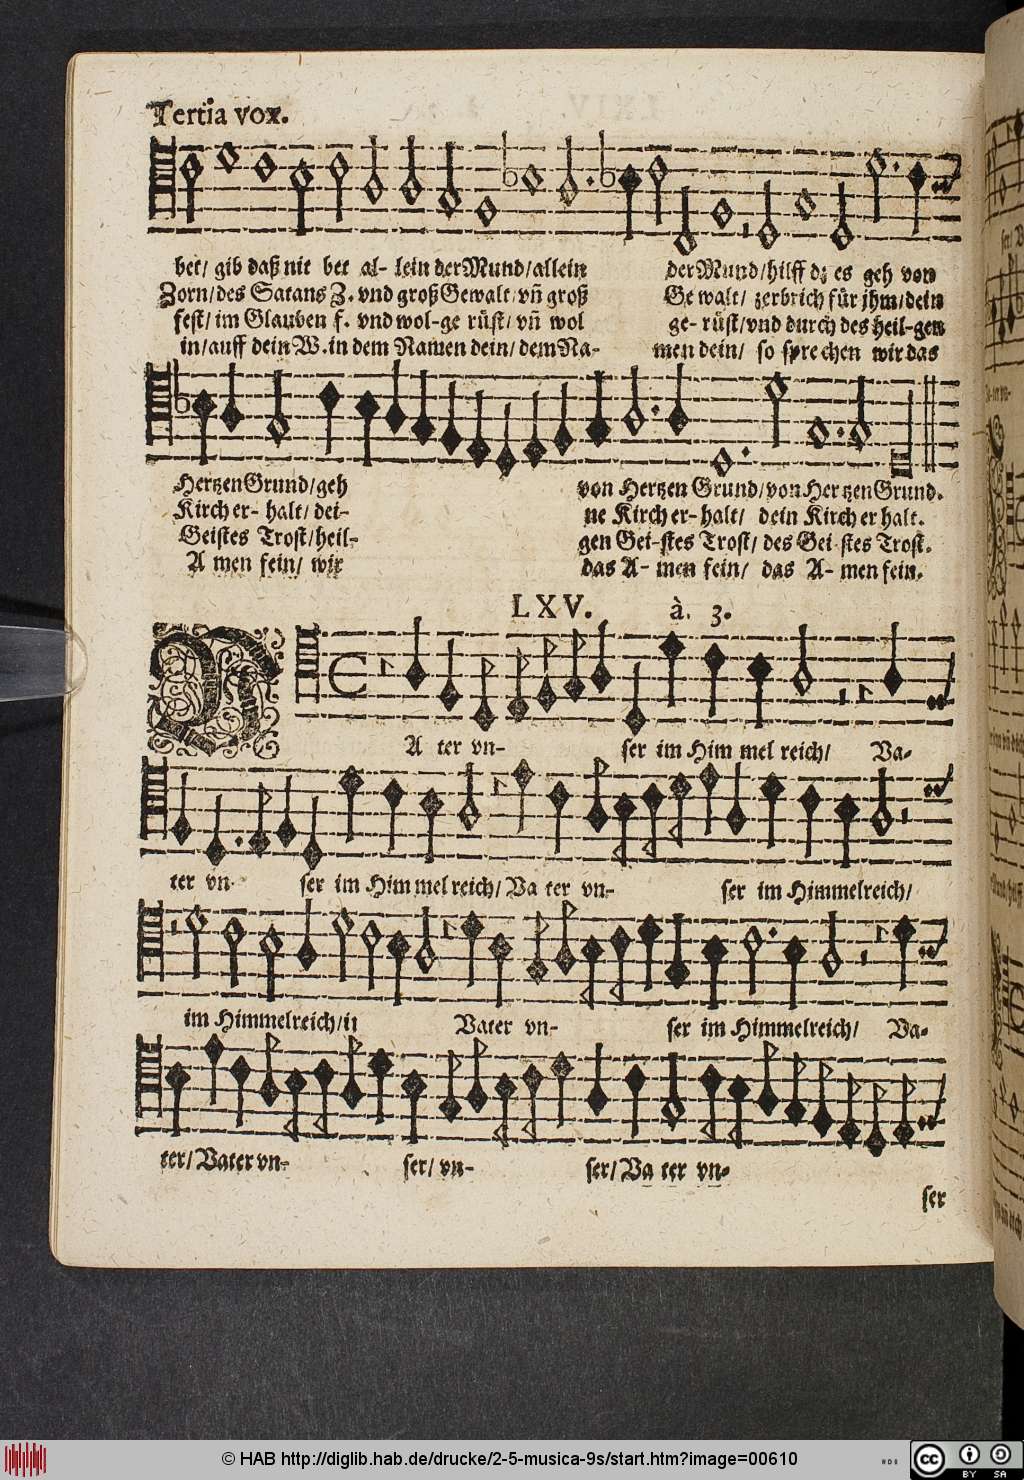 Tertia vox.
bet/ gib daß nit bet al- lein der Mund/allein der Mund/hilff dz es geh von
Zorn/des Satans Z. vnd groß Gewalt/vñ groß Ge walt/ zerbrich für jhm/dein
fest/ im Glauben f. vnd wol-ge rüst/ vñ wol ge- rüst/vnd durch des heil-gen
in/auff dein W.in dem Namen dein/ dem Na- men dein/ so spre chen wir das
Hertzen Grund/geh von Hertzen Grund/von Hertzen Grund.
Kirch er- halt/ dei- ne Kirch er- halt/ dein Kirch er halt.
Geistes Trost/heil- gen Gei-stes Trost/ des Gei stes Trost.
A men fein/ wir das A- men fein/ das A- men fein.
LXV. à. 3.
VA ter vn- ser im Him mel reich/ Va-
ter vn- ser im Him mel reich/ Va ter vn- ser im Himmelreich/
im Himmelreich/ij Vater vn- ser im Himmelreich/ Va-
ter/ Vater vn- ser/ vn- ser/ Va ter vn-
ser
© HAB http://diglib.hab.de/drucke/2-5-musica-9s/start.htm?image=00610
cc BY SA